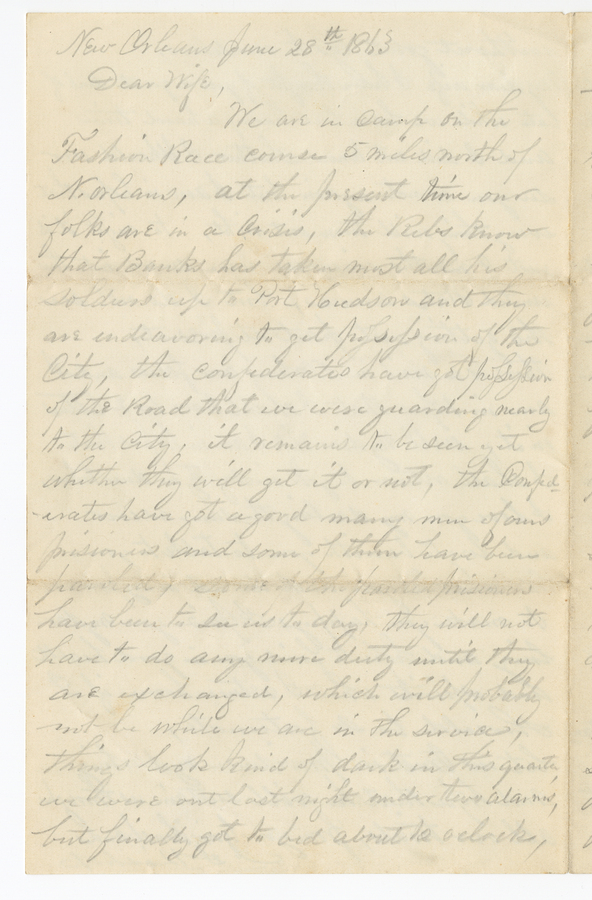 New Orleans June 28th 1863
Dear Wife,
We are in camp on the
Fashion Race course 5 miles north of
N. orleans, at the present time our
folks are in a Crisis, the Rebs know
that Banks has taken most all his
soldiers up to Port Hudson and they
are endeavoring to get possession of the
City, the confederates have got possession
of the Road that we were guarding nearly
to the City, it remains to be seen yet
whether they will get it or not, the Confed-
-erates have got a good many men of ours
prisioners and some of them have been
paroled, some of the paroled prisioners
have been to see us to day, they will not
have to do any more duty until they
are exchanged, which will probably
not be while we are in the service,
things look kind of dark in this quarter,
we were out last night under two alarms,
but finally got to bed about 12 oclock,